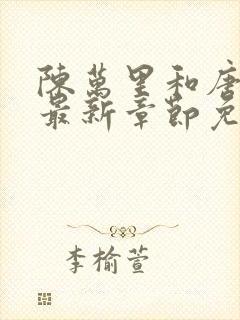 陳萬里和唐
最新章節免
李榆萱